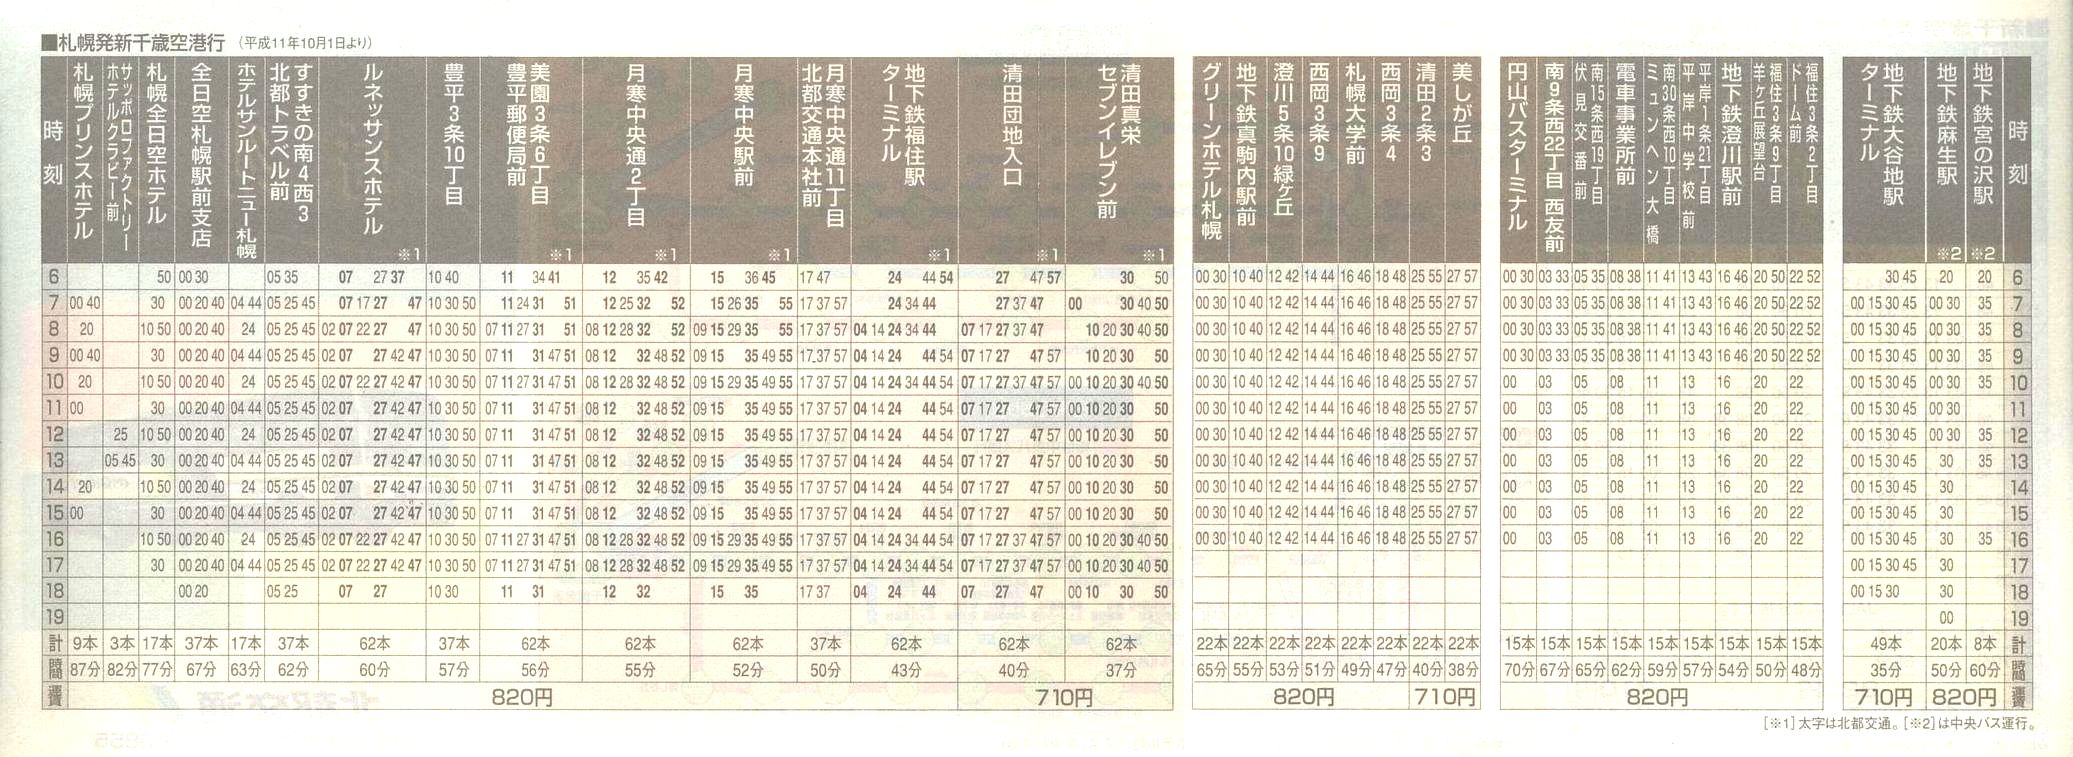 ■札幌発新千歳空港行 (平成11年10月1日より)
時刻 札幌プリンスホテル サッポロファクトリーホテルクラビー前 札幌全日空ホテル 全日空札幌駅前支店 ホテルサンルートニュー札幌 すすきの南4西3北都トラベル前 ルネッサンスホテル※1 豊平3条10丁目 美園3条6丁目豊平郵便局前※1 月寒中央通2丁目※1 月寒中央駅前※1 月寒中央通11丁目北都交通本社前 地下鉄福住駅ターミナル※1 清田団地入口※1 清田真栄セブンイレブン前※1 グリーンホテル札幌 地下鉄真駒内駅前 澄川5条10緑ヶ丘 西岡3条9 札幌大学前 西岡3条4 清田2条3 美しが丘 円山バスターミナル 南9条西22丁目 西友前 南15条西19丁目伏見交番前 電車事業所前 南30条西10丁目ミュンヘン大橋 平岸1条21丁目平岸中学校前 地下鉄澄川駅前 福住3条9丁目羊ケ丘展望台 福住3条2丁目ドーム前 地下鉄大谷地駅ターミナル 地下鉄麻生駅※2 地下鉄宮の沢駅※2 時刻
6 50 00 30 05 35 07 27 37 10 40 11 34 41 12 35 42 15 36 45 17 47 24 44 54 27 47 57 30 50 00 30 10 40 12 42 14 44 16 46 18 48 25 55 27 57 00 30 03 33 05 35 08 38 11 41 13 43 16 46 20 50 22 52 30 45 20 20 6
7 00 40 30 00 20 40 04 44 05 25 45 07 17 27 47 10 30 50 11 24 31 51 12 25 32 52 15 26 35 55 17 37 57 24 34 44 27 37 47 00 30 40 50 00 30 10 40 12 42 14 44 16 46 18 48 25 55 27 57 00 30 03 33 05 35 08 38 11 41 13 43 16 46 20 50 22 52 00 15 30 45 00 30 35 7
8 20 10 50 00 20 40 24 05 25 45 02 07 22 27 47 10 30 50 07 11 27 31 51 08 12 28 32 52 09 15 29 35 55 17 37 57 04 14 24 34 44 07 17 27 37 47 10 20 30 40 50 00 30 10 40 12 42 14 44 16 46 18 48 25 55 27 57 00 30 03 33 05 35 08 38 11 41 13 43 16 46 20 50 22 52 00 15 30 45 00 30 35 8
9 00 40 30 00 20 40 04 44 05 25 45 02 07 27 42 47 10 30 50 07 11 31 47 51 08 12 32 48 52 09 15 35 49 55 17 37 57 04 14 24 44 54 07 17 27 47 57 10 20 30 50 00 30 10 40 12 42 14 44 16 46 18 48 25 55 27 57 00 30 03 33 05 35 08 38 11 41 13 43 16 46 20 50 22 52 00 15 30 45 00 30 35 9
10 20 10 50 00 20 40 24 05 25 45 02 07 22 27 42 47 10 30 50 07 11 27 31 47 51 08 12 28 32 48 52 09 15 29 35 49 55 17 37 57 04 14 24 34 44 54 07 17 27 37 47 57 00 10 20 30 40 50 00 30 10 40 12 42 14 44 16 46 18 48 25 55 27 57 00 03 05 08 11 13 16 20 22 00 15 30 45 00 30 35 10
11 00 30 00 20 40 04 44 05 25 45 02 07 27 42 47 10 30 50 07 11 31 47 51 08 12 32 48 52 09 15 35 49 55 17 37 57 04 14 24 44 54 07 17 27 47 57 00 10 20 30 50 00 30 10 40 12 42 14 44 16 46 18 48 25 55 27 57 00 03 05 08 11 13 16 20 22 00 15 30 45 00 30 11
12 25 10 50 00 20 40 24 05 25 45 02 07 27 42 47 10 30 50 07 11 31 47 51 08 12 32 48 52 09 15 35 49 55 17 37 57 04 14 24 44 54 07 17 27 47 57 00 10 20 30 50 00 30 10 40 12 42 14 44 16 46 18 48 25 55 27 57 00 03 05 08 11 13 16 20 22 00 15 30 45 00 30 35 12
13 05 45 30 00 20 40 04 44 05 25 45 02 07 27 42 47 10 30 50 07 11 31 47 51 08 12 32 48 52 09 15 35 49 55 17 37 57 04 14 24 44 54 07 17 27 47 57 00 10 20 30 50 00 30 10 40 12 42 14 44 16 46 18 48 25 55 27 57 00 03 05 08 11 13 16 20 22 00 15 30 45 30 35 13
14 20 10 50 00 20 40 24 05 25 45 02 07 27 42 47 10 30 50 07 11 31 47 51 08 12 32 48 52 09 15 35 49 55 17 37 57 04 14 24 44 54 07 17 27 47 57 00 10 20 30 50 00 30 10 40 12 42 14 44 16 46 18 48 25 55 27 57 00 03 05 08 11 13 16 20 22 00 15 30 45 30 14
15 00 30 00 20 40 04 44 05 25 45 02 07 27 42 47 10 30 50 07 11 31 47 51 08 12 32 48 52 09 15 35 49 55 17 37 57 04 14 24 44 54 07 17 27 47 57 00 10 20 30 50 00 30 10 40 12 42 14 44 16 46 18 48 25 55 27 57 00 03 05 08 11 13 16 20 22 00 15 30 45 30 15
16 10 50 00 20 40 24 05 25 45 02 07 22 27 42 47 10 30 50 07 11 27 31 47 51 08 12 28 32 48 52 09 15 29 35 49 55 17 37 57 04 14 24 34 44 54 07 17 27 37 47 57 00 10 20 30 40 50 00 30 10 40 12 42 14 44 16 46 18 48 25 55 27 57 00 03 05 08 11 13 16 20 22 00 15 30 45 30 35 16
17 30 00 20 40 04 44 05 25 45 02 07 22 27 42 47 10 30 50 07 11 27 31 47 51 08 12 28 32 48 52 09 15 29 35 49 55 17 37 57 04 14 24 34 44 54 07 17 27 37 47 57 00 10 20 30 40 50 00 15 30 45 30 17
18 00 20 05 25 07 27 10 30 11 31 12 32 15 35 17 37 04 24 44 07 27 47 00 10 30 50 00 15 30 30 18
19 00 19
計 9本 3本 17本 37本 17本 37本 62本 37本 62本 62本 62本 37本 62本 62本 62本 22本 22本 22本 22本 22本 22本 22本 22本 15本 15本 15本 15本 15本 15本 15本 15本 15本 49本 20本 8本 計
時間 87分 82分 77分 67分 63分 62分 60分 57分 56分 55分 52分 50分 43分 40分 37分 65分 55分 53分 51分 49分 47分 40分 38分 70分 67分 65分 62分 59分 57分 54分 50分 48分 35分 50分 60分 時間
運賃 820円 710円 820円 710円 820円 710円 820円 運賃
[※1]太字は北都交通。[※2]は中央バス運行。